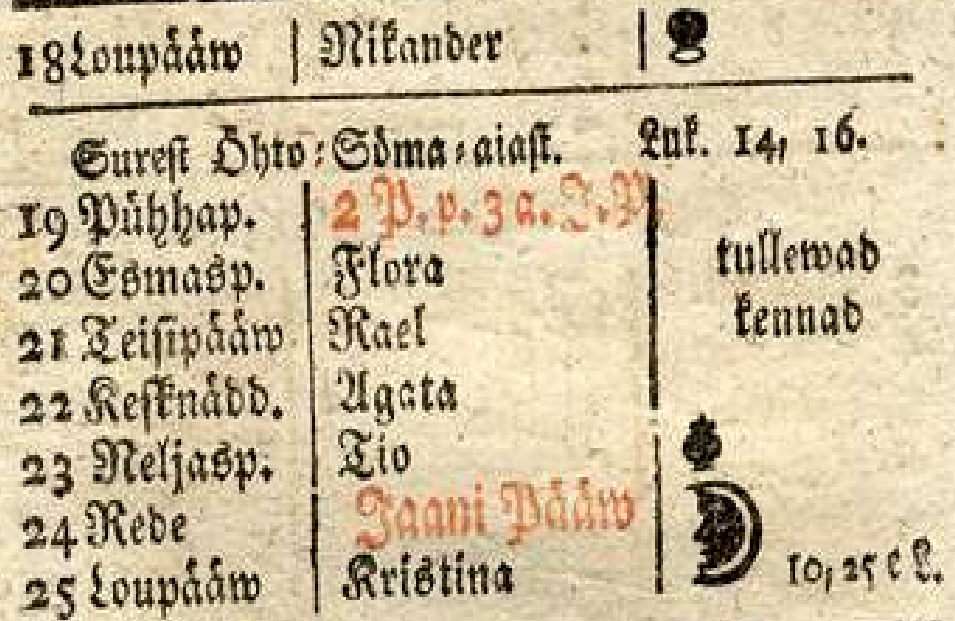 18 Loupääw | Nikander |
Surest Öhto-Söma-aiast. Luk. 14, 16.
19 Pühhap. 2 P. p. 3 a. J. P.
20 Esmasp. Flora tullewad
21 Teisipääw Rael kennad
22 Kesknädd. Agata
23 Neljasp. Tio
24 Rede Jaani Pääw
25 Loupääw Kristina 10, 25 e L.